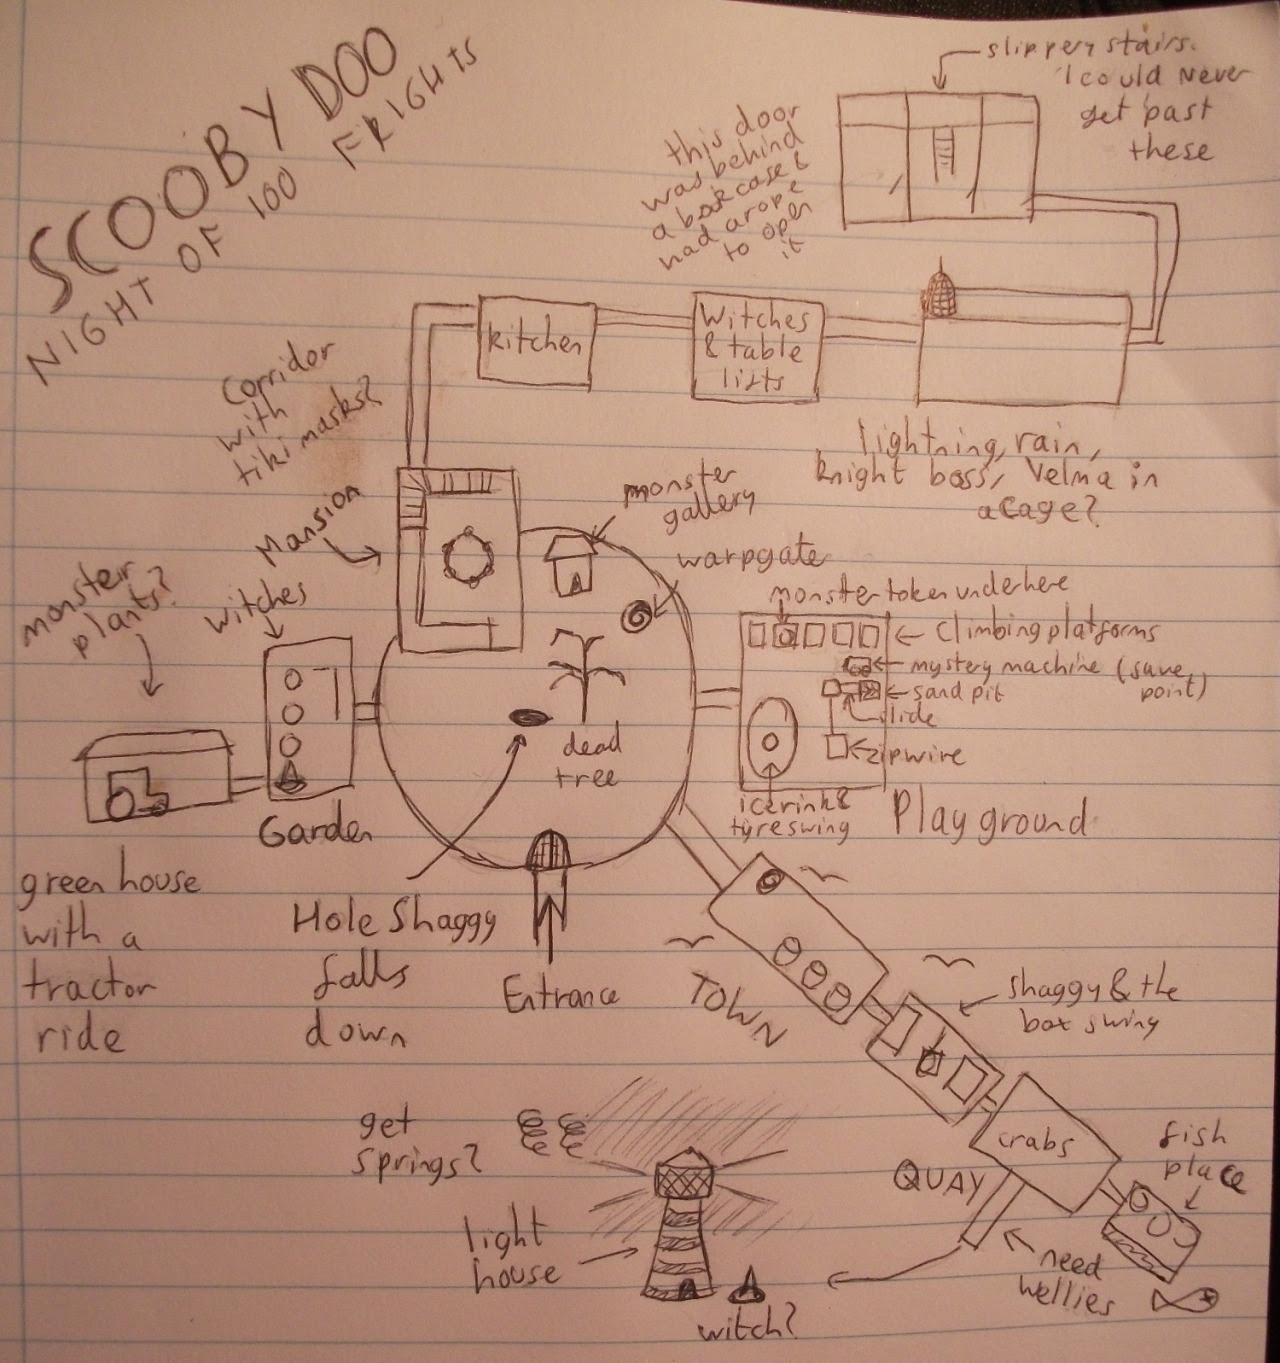 SCOOBY DOO
NIGHT OF 100 FRIGHTS
slippery stairs.
I could never
get past
these
this door
was behind
a bookcase &
had a rope
to open
it
kitchen
Witches
& table
lifts
lightning, rain,
knight boss, Velma in
a cage?
Corridor
with
tiki masks?
Mansion
monster
gallery
warpgate
monster token under here
climbing platforms
mystery machine (save
point)
sand pit
slide
zipwire
icerink &
tyre swing
Playground
monster
plants?
witches
Garden
dead
tree
green house
with a
tractor
ride
Hole Shaggy
falls
down
Entrance
TOWN
shaggy & the
box swing
crabs
QUAY
fish
place
need
wellies
get
springs?
light
house
witch?